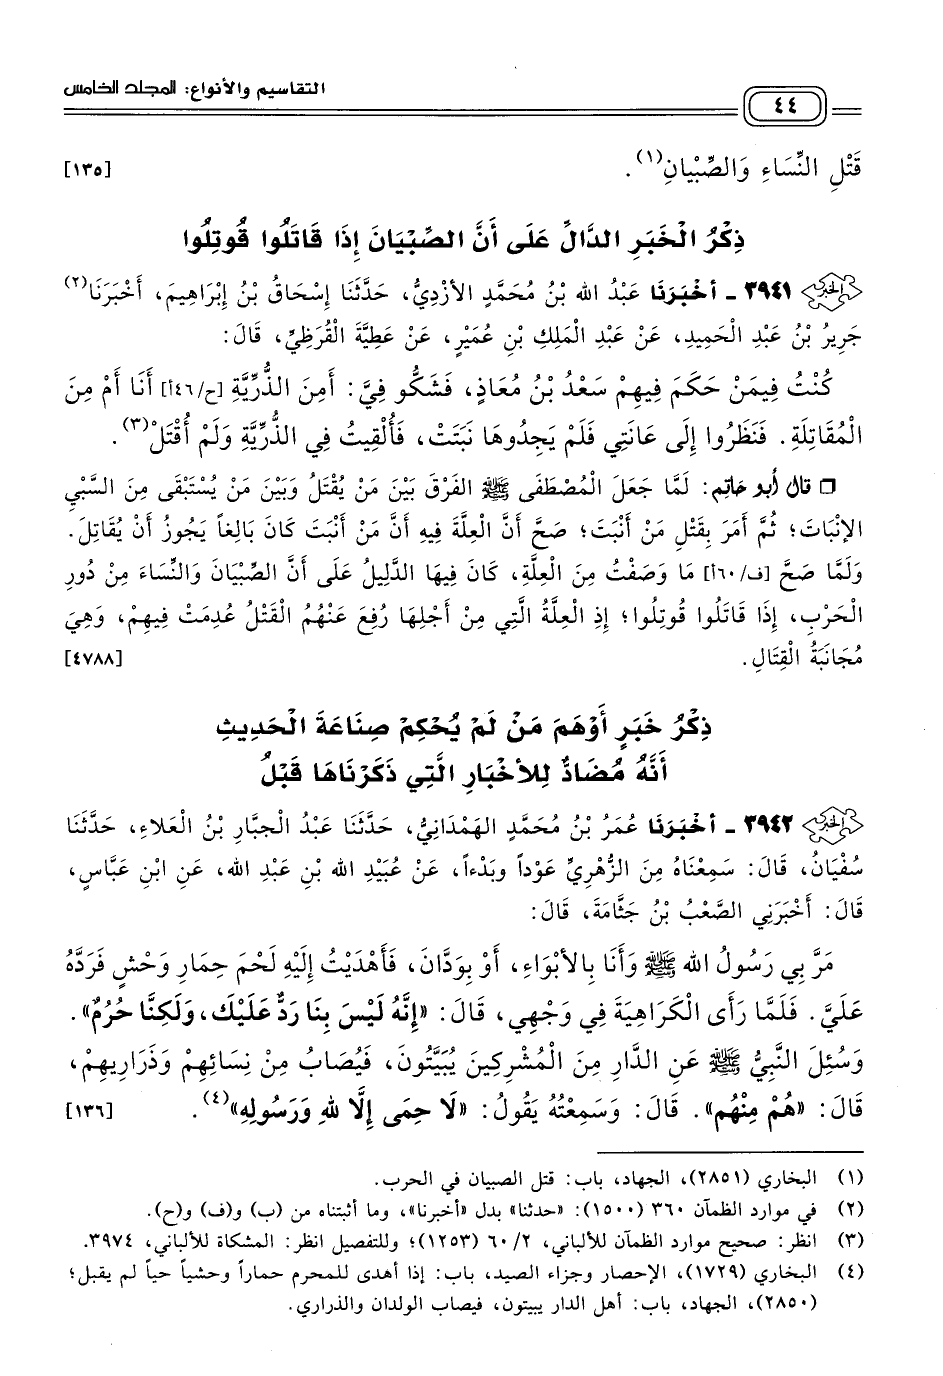 التقاسيم والأنواع: المجلد الخامس
٤٤
قَتْلِ النِّسَاءِ وَالصِّبْيَانِ(١). [١٣٥]
ذِكْرُ الْخَبَرِ الدَّالِّ عَلَى أَنَّ الصِّبْيَانَ إِذَا قَاتَلُوا قُوتِلُوا
٣٩٤١ - أَخْبَرَنَا عَبْدُ الله بْنُ مُحَمَّدٍ الأَزْدِيُّ، حَدَّثَنَا إِسْحَاقُ بْنُ إِبْرَاهِيمَ، أَخْبَرَنَا(٢)
جَرِيرُ بْنُ عَبْدِ الْحَمِيدِ، عَنْ عَبْدِ الْمَلِكِ بْنِ عُمَيْرٍ، عَنْ عَطِيَّةَ الْقُرَظِيِّ، قَالَ:
كُنْتُ فِيمَنْ حَكَمَ فِيهِمْ سَعْدُ بْنُ مُعَاذٍ، فَشَكُّو فِيَّ: أَمِنَ الذُّرِّيَّةِ [ح/٤٦أ] أَنَا أَمْ مِنَ
الْمُقَاتِلَةِ. فَنَظَرُوا إِلَى عَانَتِي فَلَمْ يَجِدُوهَا نَبَتَتْ، فَأُلْقِيتُ فِي الذُّرِّيَّةِ وَلَمْ أُقْتَلْ(٣).
□ قال أبو حاتم: لَمَّا جَعَلَ الْمُصْطَفَى ﷺ الفَرْقَ بَيْنَ مَنْ يُقْتَلُ وَبَيْنَ مَنْ يُسْتَبْقَى مِنَ السَّبْيِ
الإِنْبَاتَ؛ ثُمَّ أَمَرَ بِقَتْلِ مَنْ أَنْبَتَ؛ صَحَّ أَنَّ الْعِلَّةَ فِيهِ أَنَّ مَنْ أَنْبَتَ كَانَ بَالِغاً يَجُوزُ أَنْ يُقَاتِلَ.
وَلَمَّا صَحَّ [ف/٦٠أ] مَا وَصَفْتُ مِنَ الْعِلَّةِ، كَانَ فِيهَا الدَّلِيلُ عَلَى أَنَّ الصِّبْيَانَ وَالنِّسَاءَ مِنْ دُورِ
الْحَرْبِ، إِذَا قَاتَلُوا قُوتِلُوا؛ إِذِ الْعِلَّةُ الَّتِي مِنْ أَجْلِهَا رُفِعَ عَنْهُمُ الْقَتْلُ عُدِمَتْ فِيهِمْ، وَهِيَ
مُجَانَبَةُ الْقِتَالِ. [٤٧٨٨]
ذِكْرُ خَبَرٍ أَوْهَمَ مَنْ لَمْ يُحْكِمْ صِنَاعَةَ الْحَدِيثِ
أَنَّهُ مُضَادٌّ لِلأَخْبَارِ الَّتِي ذَكَرْنَاهَا قَبْلُ
٣٩٤٢ - أَخْبَرَنَا عُمَرُ بْنُ مُحَمَّدٍ الهَمْدَانِيُّ، حَدَّثَنَا عَبْدُ الْجَبَّارِ بْنُ الْعَلَاءِ، حَدَّثَنَا
سُفْيَانُ، قَالَ: سَمِعْنَاهُ مِنَ الزُّهْرِيِّ عَوْداً وَبَدْءاً، عَنْ عُبَيْدِ الله بْنِ عَبْدِ الله، عَنِ ابْنِ عَبَّاسٍ،
قَالَ: أَخْبَرَنِي الصَّعْبُ بْنُ جَثَّامَةَ، قَالَ:
مَرَّ بِي رَسُولُ الله ﷺ وَأَنَا بِالأَبْوَاءِ، أَوْ بِوَدَّانَ، فَأَهْدَيْتُ إِلَيْهِ لَحْمَ حِمَارِ وَحْشٍ فَرَدَّهُ
عَلَيَّ. فَلَمَّا رَأَى الْكَرَاهِيَةَ فِي وَجْهِي، قَالَ: «إِنَّهُ لَيْسَ بِنَا رَدٌّ عَلَيْكَ، وَلَكِنَّا حُرُمٌ».
وَسُئِلَ النَّبِيُّ ﷺ عَنِ الدَّارِ مِنَ الْمُشْرِكِينَ يُبَيَّتُونَ، فَيُصَابُ مِنْ نِسَائِهِمْ وَذَرَارِيهِمْ،
قَالَ: «هُمْ مِنْهُم». قَالَ: وَسَمِعْتُهُ يَقُولُ: «لَا حِمَى إِلَّا للهِ وَرَسُولِهِ»(٤). [١٣٦]
(١) البخاري (٢٨٥١)، الجهاد، باب: قتل الصبيان في الحرب.
(٢) في موارد الظمآن ٣٦٠ (١٥٠٠): «حدثنا» بدل «أخبرنا»، وما أثبتناه من (ب) و(ف) و(ح).
(٣) انظر: صحيح موارد الظمآن للألباني، ٦٠/٢ (١٢٥٣)؛ وللتفصيل انظر: المشكاة للألباني، ٣٩٧٤.
(٤) البخاري (١٧٢٩)، الإحصار وجزاء الصيد، باب: إذا أهدى للمحرم حماراً وحشياً حياً لم يقبل؛
(٢٨٥٠)، الجهاد، باب: أهل الدار يبيتون، فيصاب الولدان والذراري.